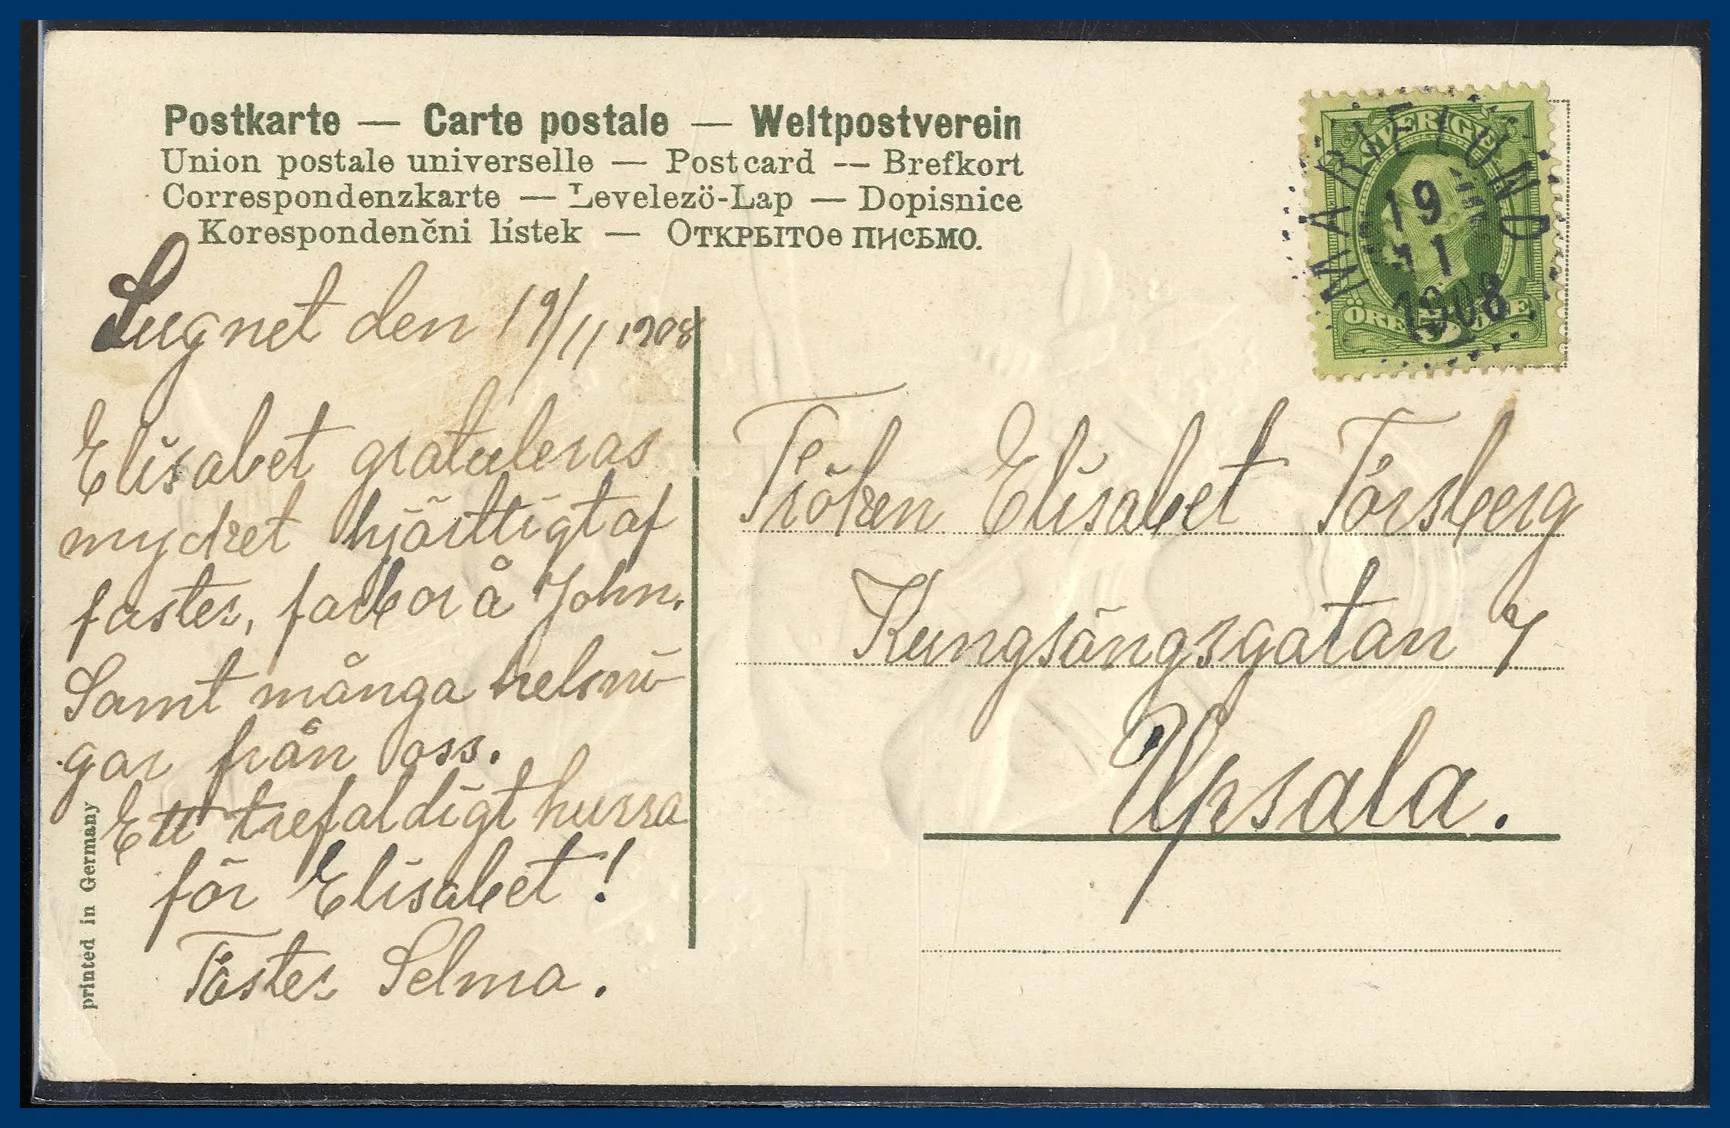 Postkarte — Carte postale — Weltpostverein
Union postale universelle — Postcard — Brefkort
Correspondenzkarte — Levelezö-Lap — Dopisnice
Korespondenčni lístek — ОТКРЫТОе ПИСЬМО.
SVERIGE
ÖRE 5 ÖRE
MARIELUND
19
11
1908
Lugnet den 19/11 1908
Elisabet gratuleras
mycket hjärttligt af
faster, farbor å John.
Samt många helsnin-
gar från oss.
Ett trefaldigt hurra
för Elisabet!
Faster Selma.
Fröken Elisabet Forsberg
Kungsängsgatan 7
Upsala.
printed in Germany